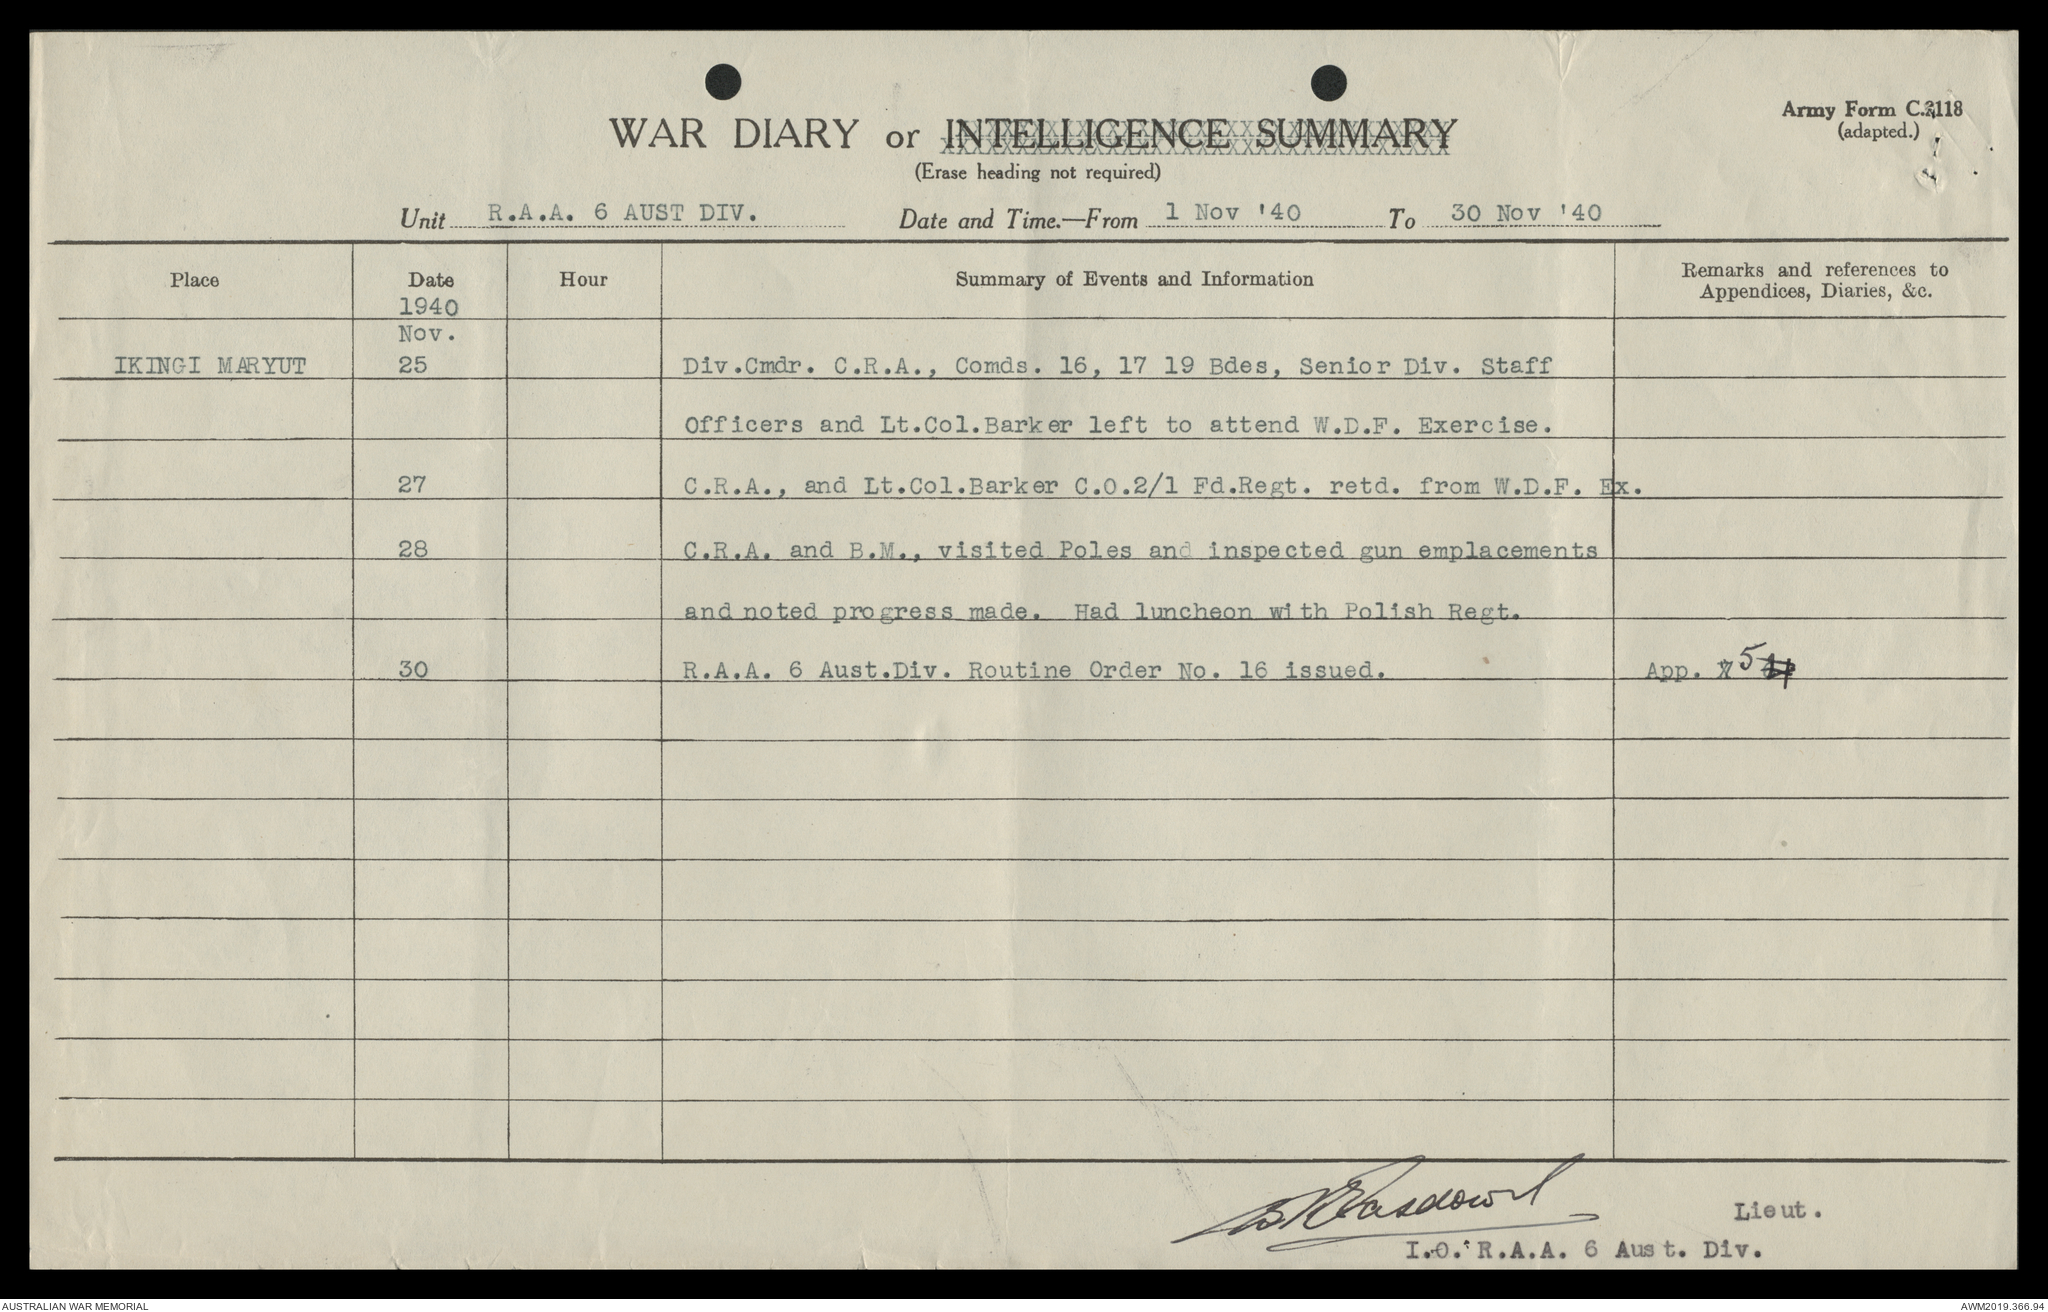 Army Form C.2118
(adapted.)
WAR DIARY or INTELLIGENCE SUMMARY
(Erase heading not required)
Unit R.A.A. 6 AUST DIV. Date and Time.—From 1 Nov '40 To 30 Nov '40
Place Date Hour Summary of Events and Information Remarks and references to
Appendices, Diaries, &c.
1940
Nov.
IKINGI MARYUT 25 Div.Cmdr. C.R.A., Comds. 16, 17 19 Bdes, Senior Div. Staff
Officers and Lt.Col.Barker left to attend W.D.F. Exercise.
27 C.R.A., and Lt.Col.Barker C.O.2/1 Fd.Regt. retd. from W.D.F. Ex.
28 C.R.A. and B.M., visited Poles and inspected gun emplacements
and noted progress made. Had luncheon with Polish Regt.
30 R.A.A. 6 Aust.Div. Routine Order No. 16 issued. App. 5
Lieut.
I.O. R.A.A. 6 Aust. Div.
AUSTRALIAN WAR MEMORIAL AWM2019.366.94